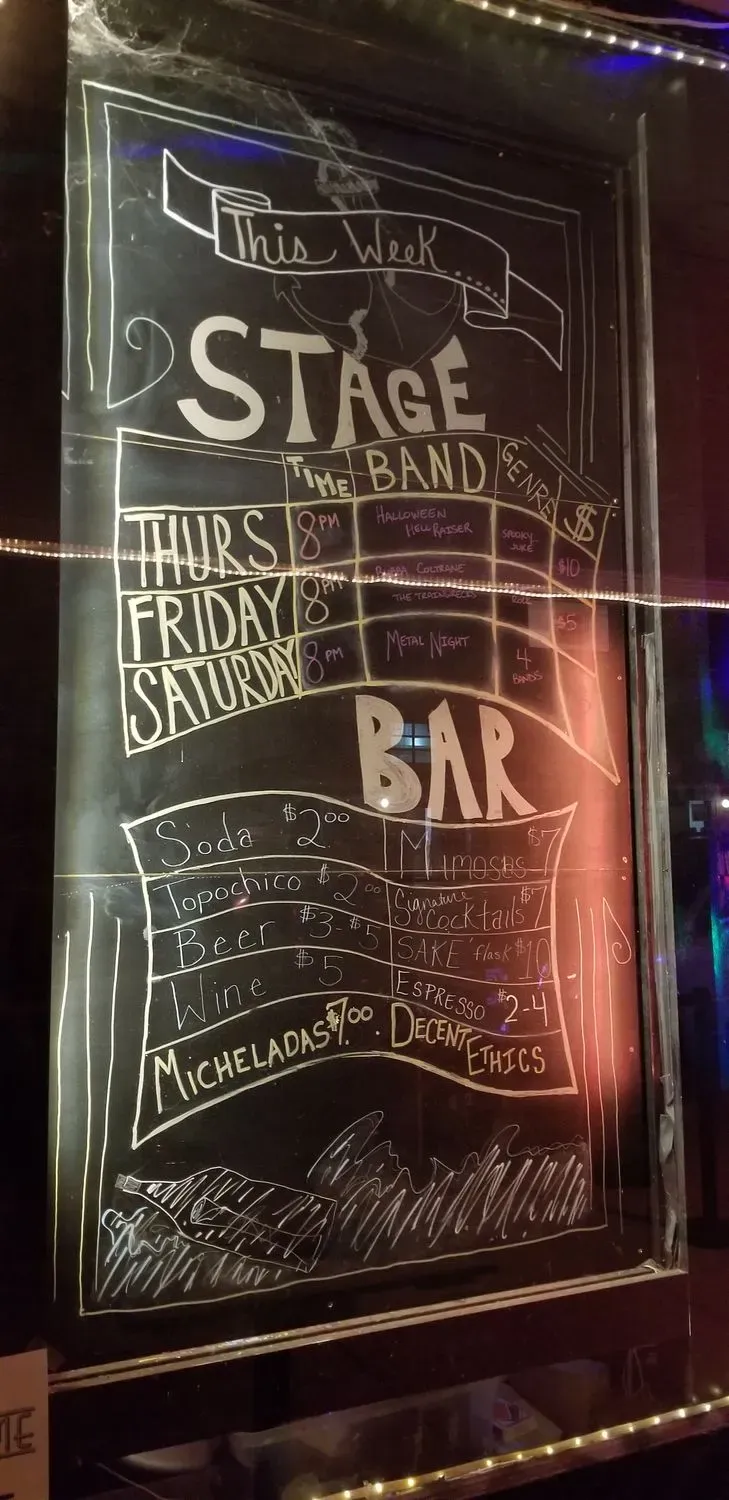 This Week....
STAGE
TIME BAND GENRE $
THURS 8PM HALLOWEEN HELLRAISER SPOOKY JUKE $10
FRIDAY 8PM BUBBA COLTRANE THE TRAINWRECKS ROCK $5
SATURDAY 8PM METAL NIGHT 4 BANDS
BAR
Soda $2.00 Mimosas $7
Topochico $2.00 Signature Cocktails $7
Beer $3-$5 SAKE' flask $10
Wine $5 ESPRESSO $2-4
MICHELADAS $7.00. DECENT ETHICS